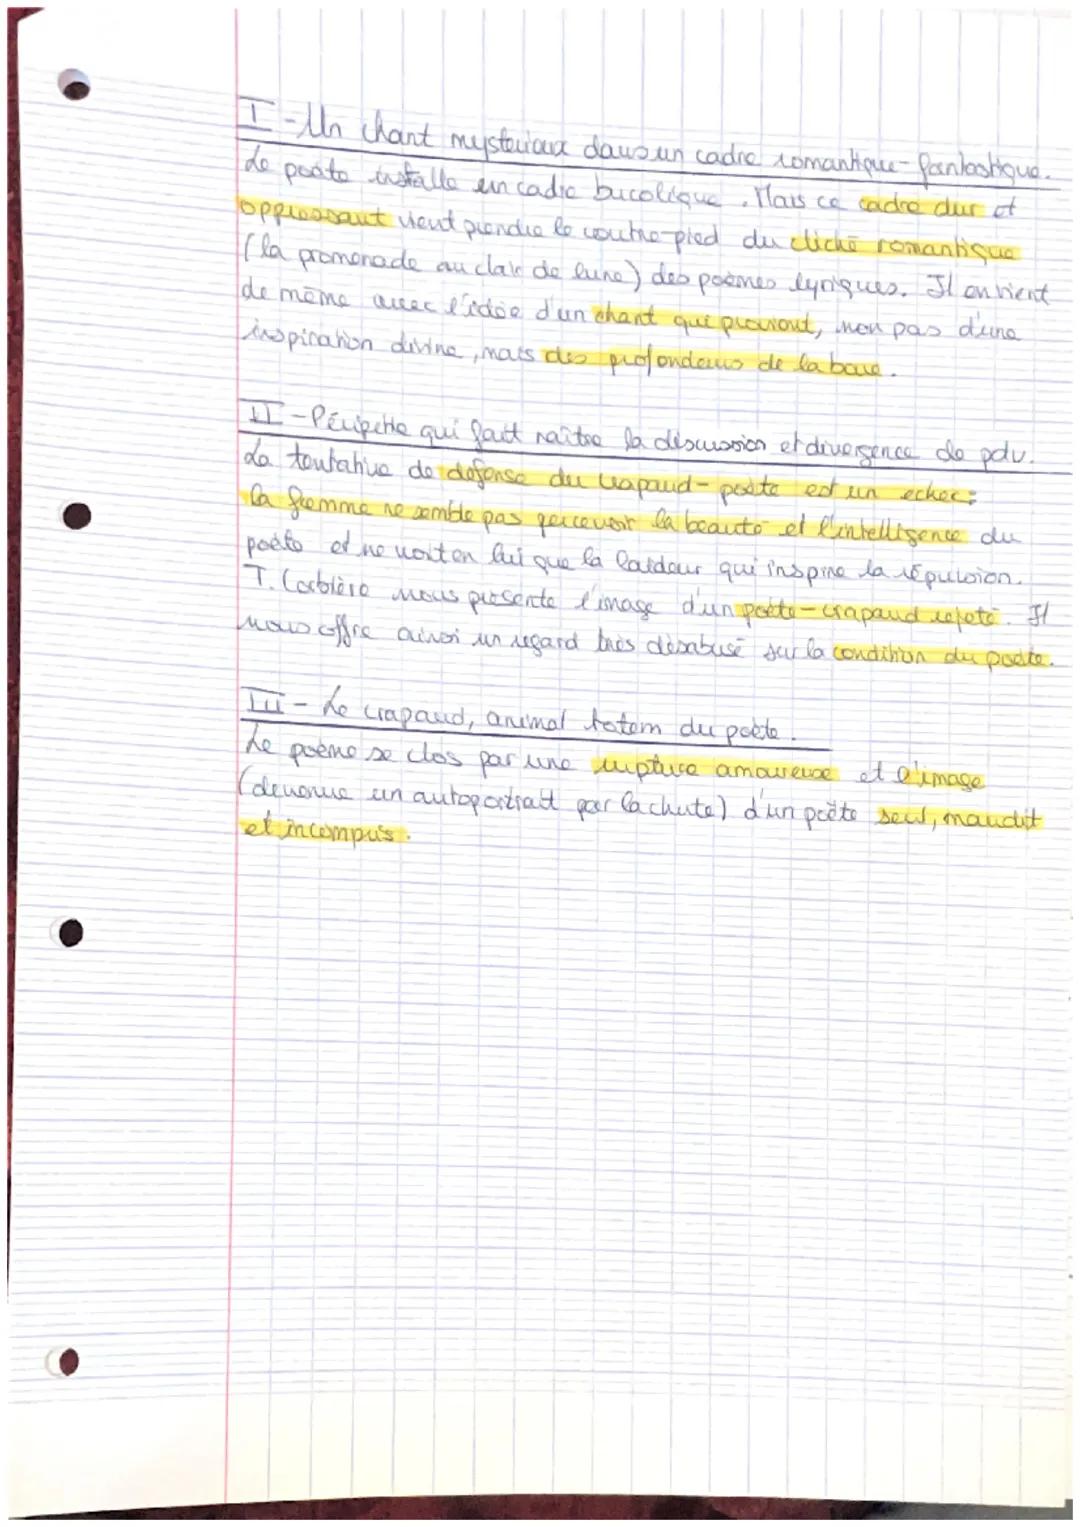 I - Un chant mystérieux dans un cadre romantique-fantastique.
Le poète installe un cadre bucolique. Mais ce cadre dur et
oppressant vient prendre le contre-pied du cliché romantique
(la promenade au clair de lune) des poèmes lyriques. Il en vient
de même avec l'idée d'un chant qui provient, non pas d'une
inspiration divine, mais des profondeurs de la boue.
II - Péripétie qui fait naître la discussion et divergence de pdv.
La tentative de défense du crapaud-poète est un échec :
la femme ne semble pas percevoir la beauté et l'intelligence du
poète et ne voit en lui que la laideur qui inspire la répulsion.
T. Corbière nous présente l'image d'un poète-crapaud rejeté. Il
nous offre ainsi un regard très désabusé sur la condition du poète.
III - Le crapaud, animal totem du poète.
Le poème se clos par une rupture amoureuse et l'image
(devenue un autoportrait par la chute) d'un poète seul, maudit
et incompris.